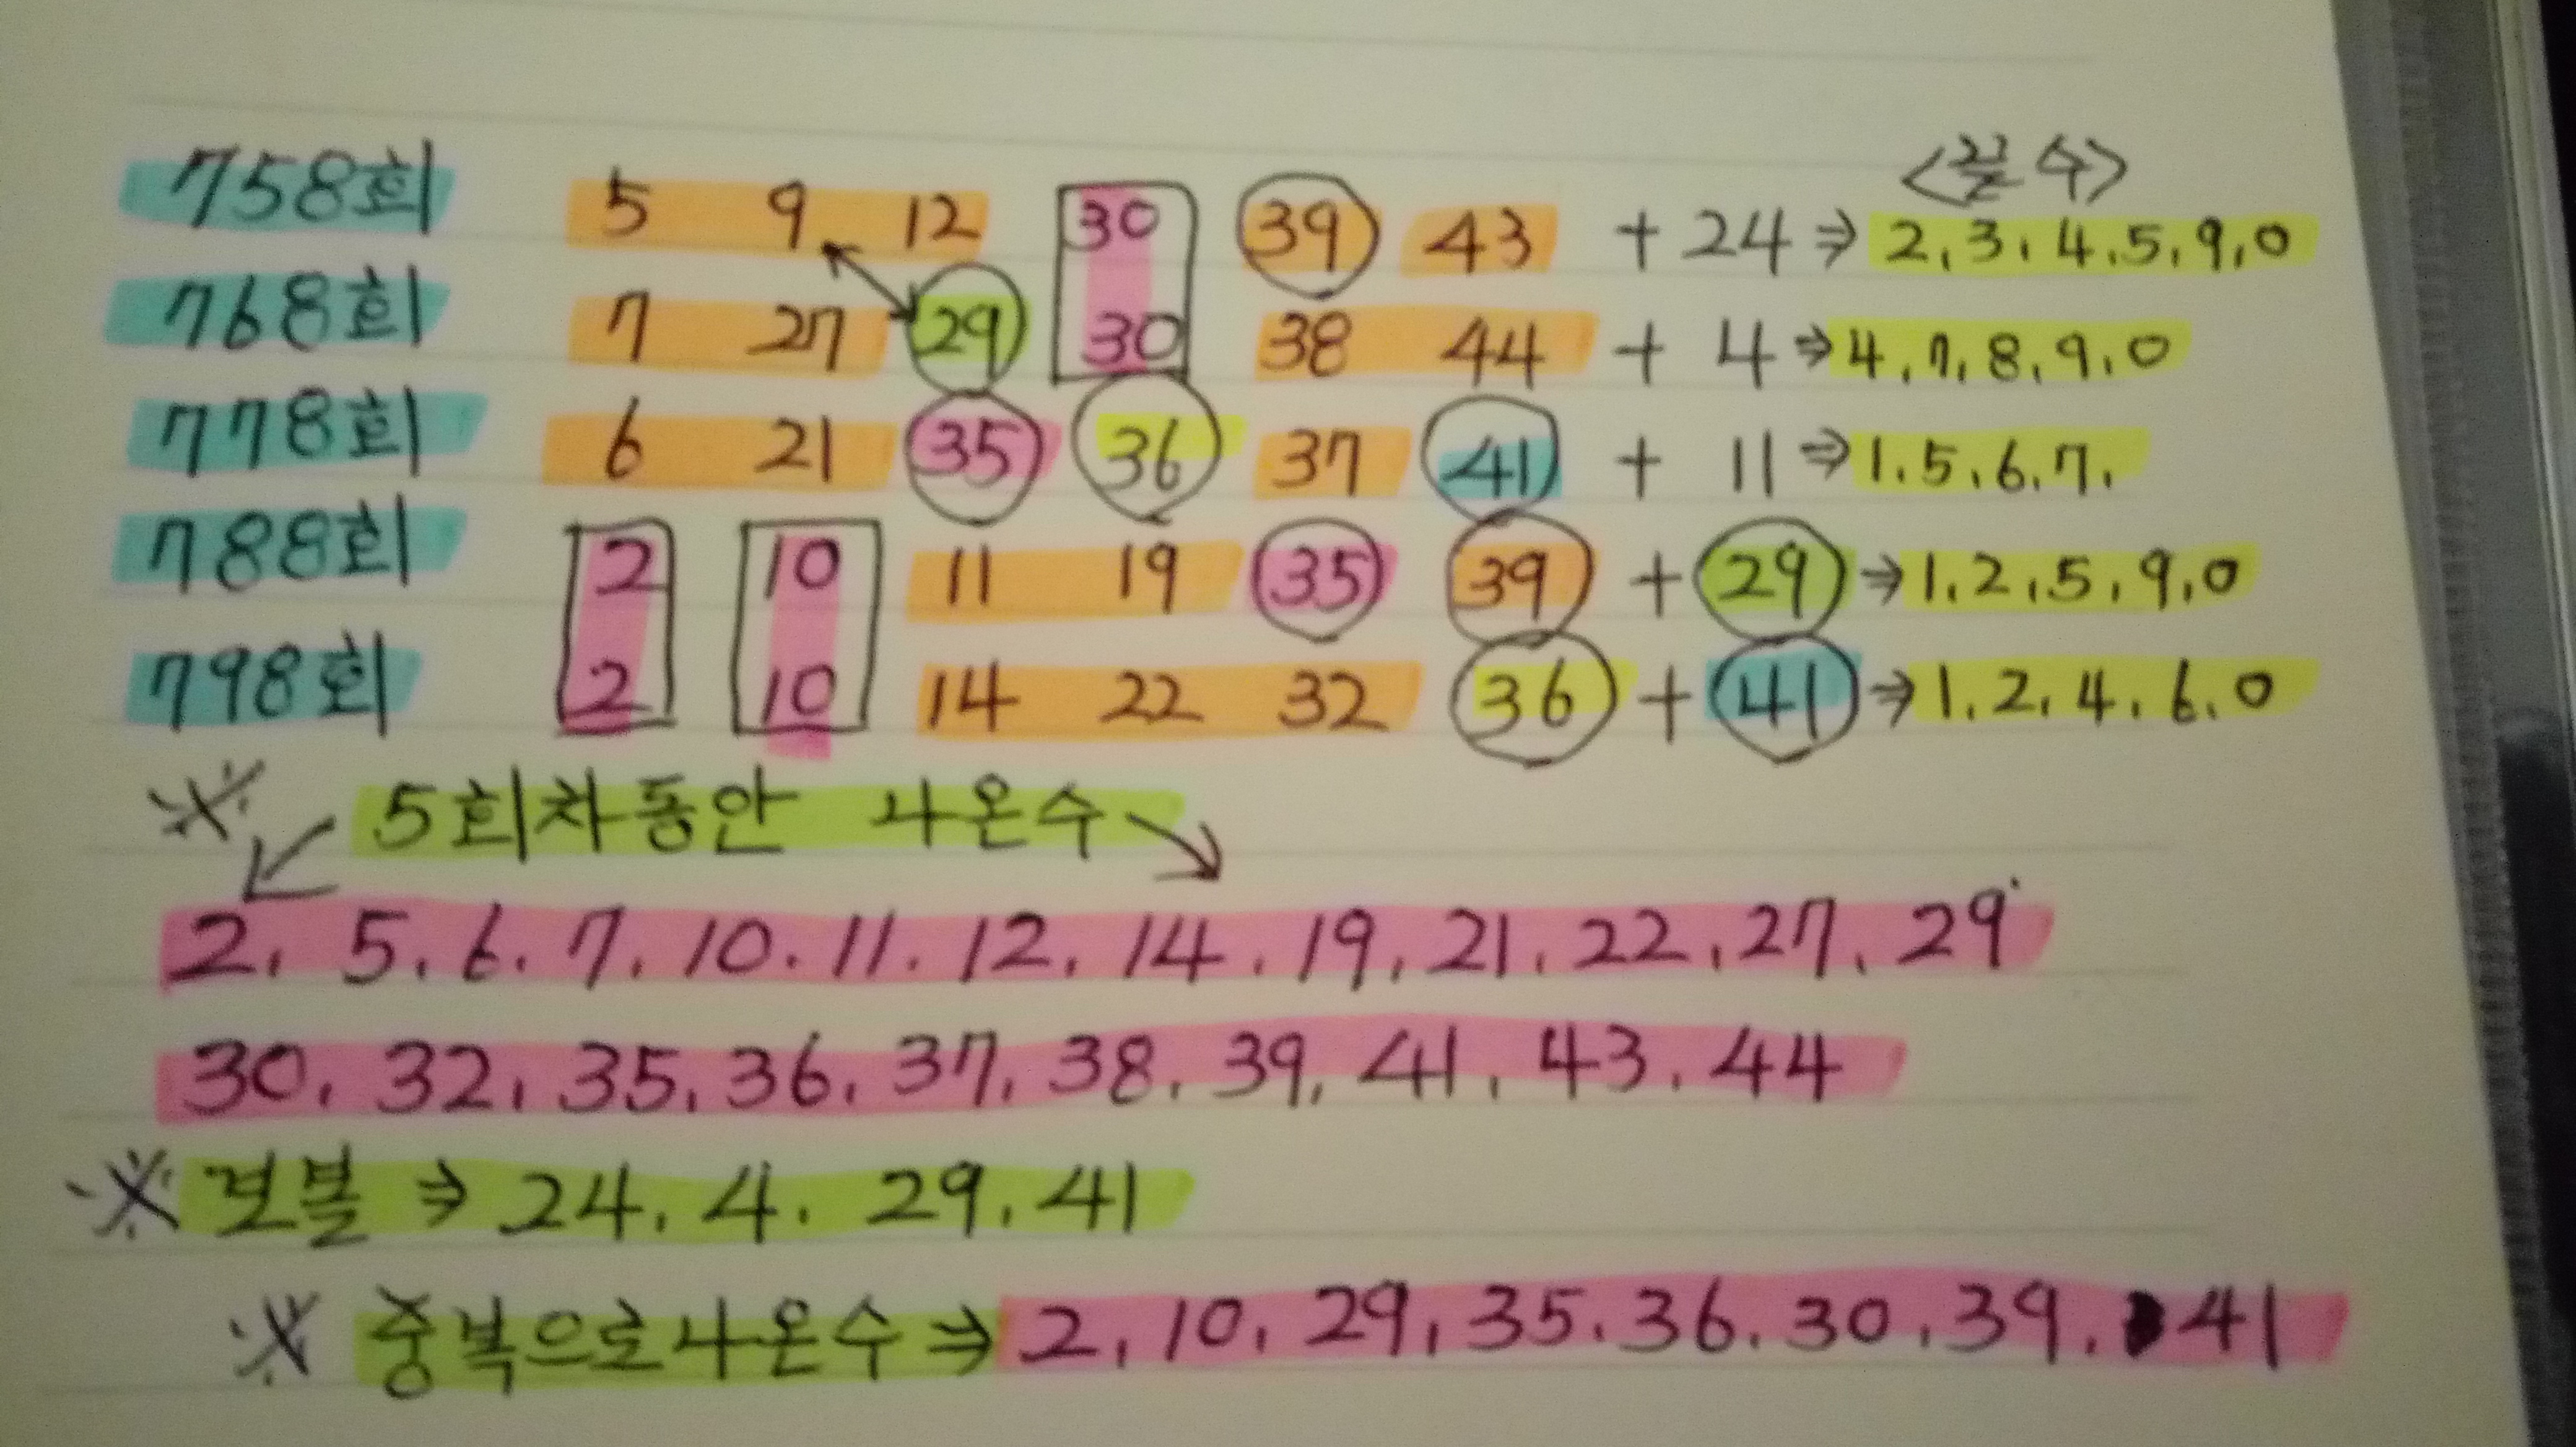 <끝수>
758회 5 9 12 30 39 43 + 24 ⇒ 2, 3, 4, 5, 9, 0
768회 7 27 29 30 38 44 + 4 ⇒ 4, 7, 8, 9, 0
778회 6 21 35 36 37 41 + 11 ⇒ 1. 5, 6, 7,
788회 2 10 11 19 35 39 + 29 ⇒ 1, 2, 5, 9, 0
798회 2 10 14 22 32 36 + 41 ⇒ 1. 2, 4, 6, 0
※ 5회차동안 나온수
2, 5, 6, 7, 10. 11. 12, 14, 19, 21, 22, 27, 29
30, 32, 35, 36, 37, 38, 39, 41, 43, 44
※ 보볼 ⇒ 24, 4, 29, 41
※ 중복으로 나온수 ⇒ 2, 10, 29, 35, 36, 30, 39, 41